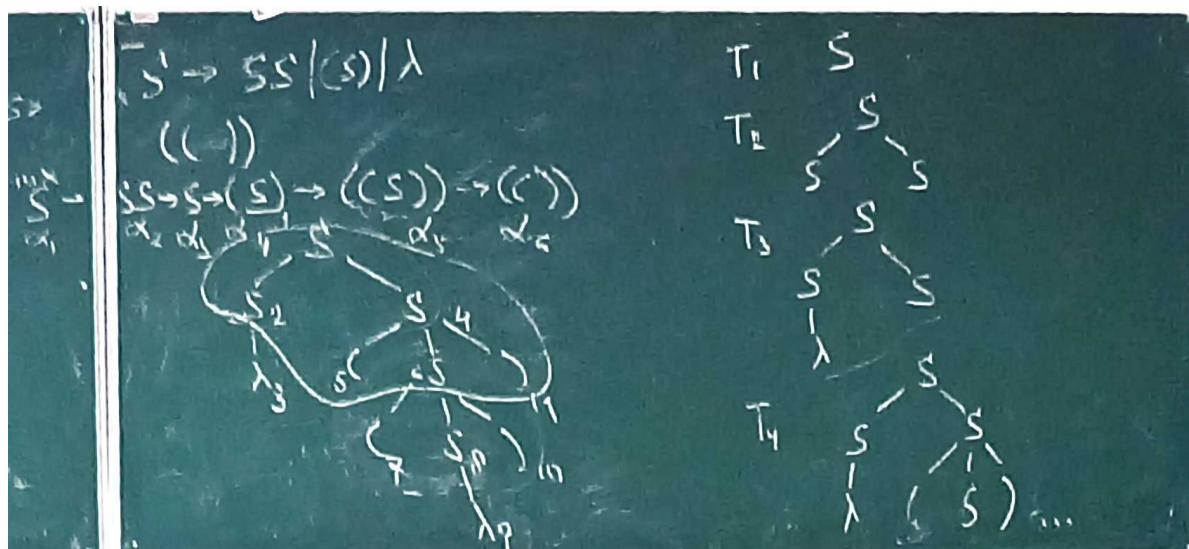 S → SS|(S)|λ
(( ))
S → SS → S → (S) → ((S)) → (( ))
α₁ α₂ α₃ α₄ α₅ α₆
S
S 2 S 4
λ 3 5 ( 6 S )
7 ( S )
λ 9
T₁ S
T₂ S
S S
T₃ S
S S
λ
T₄ S
S S
λ ( S ) ...